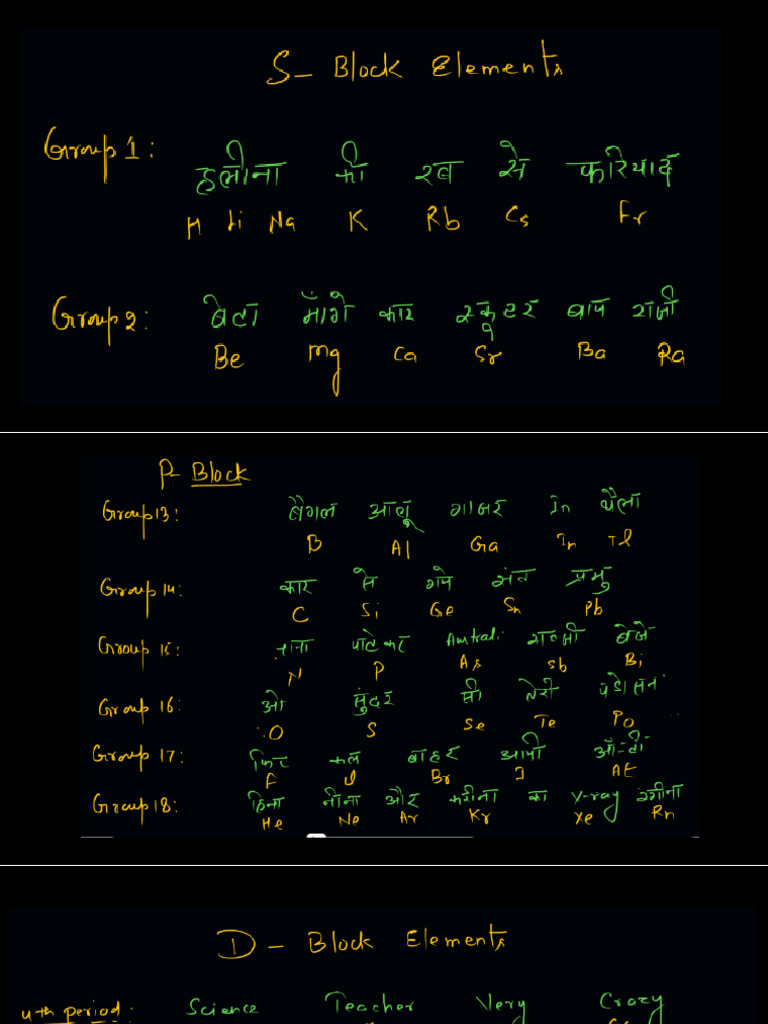 S- Block Elements
Group 1: हलीना की रब से फरियाद
H Li Na K Rb Cs Fr
Group 2: बेटा माँगे कार स्कूटर बाप राजी
Be Mg Ca Sr Ba Ra
P- Block
Group 13: बैंगन आलू गाजर In थैला
B Al Ga In Tl
Group 14: कार से गये संत प्रभु
C Si Ge Sn Pb
Group 15: नाना पाटेकर Austral: सब्जी बेचे
N P As Sb Bi
Group 16: ओ सुंदर सी तेरी पडोसन
O S Se Te Po
Group 17: फिर कल बाहर आयी आँटी
F Cl Br I At
Group 18: हिना नीना और करीना का X-ray रंगीना
He Ne Ar Kr Xe Rn
D - Block Elements
4th period: Science Teacher Very Crazy